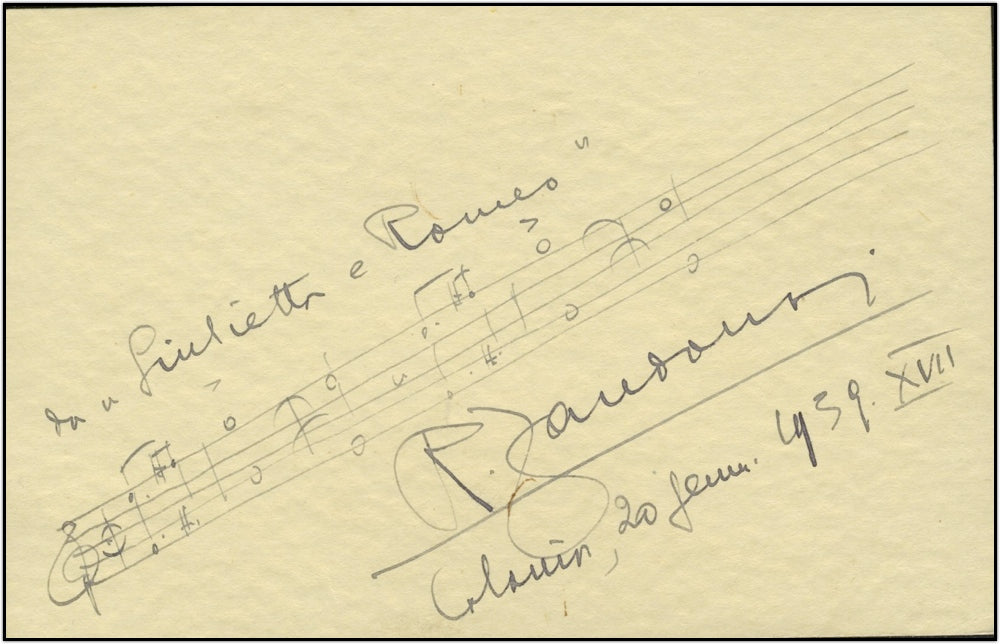 da "Giulietta e Romeo"
R. Zandonai
Colonia, 20 genn. 1939. XVII